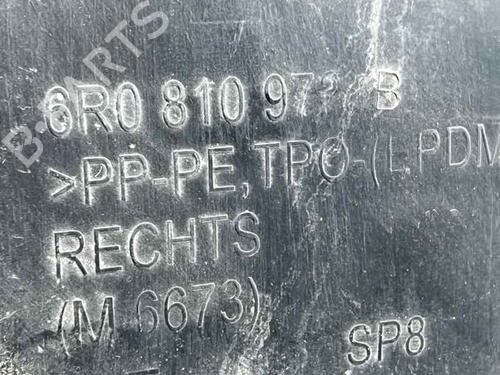 B-PARTS
6R0 810 97 B
>PP-PE, TPO-(EPDM
RECHTS
(M 6673)
SP8